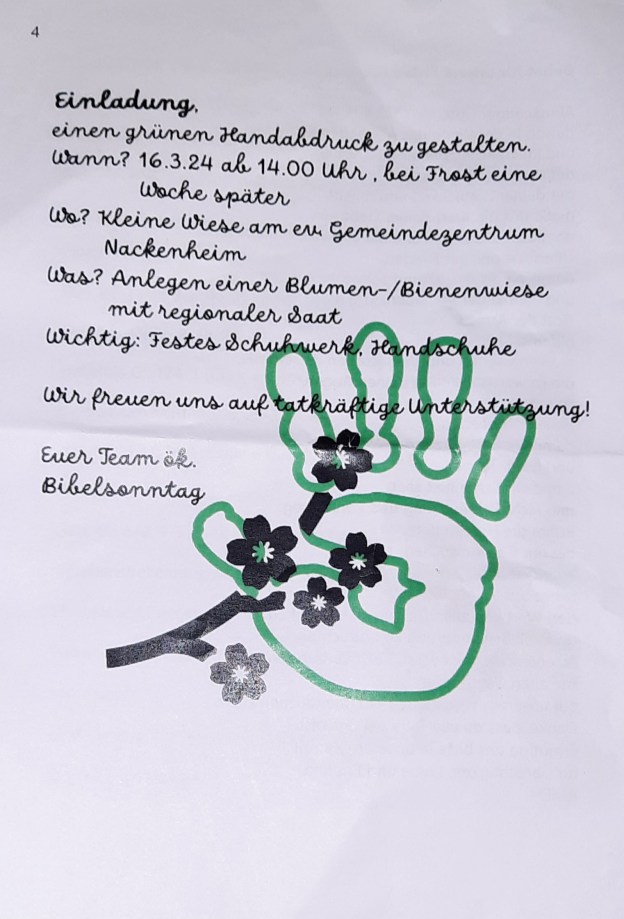 4
Einladung,
einen grünen Handabdruck zu gestalten.
Wann? 16.3.24 ab 14.00 Uhr, bei Frost eine
Woche später
Wo? Kleine Wiese am ev. Gemeindezentrum
Nackenheim
Was? Anlegen einer Blumen-/Bienenwiese
mit regionaler Saat
Wichtig: Festes Schuhwerk, Handschuhe
Wir freuen uns auf tatkräftige Unterstützung!
Euer Team ök.
Bibelsonntag